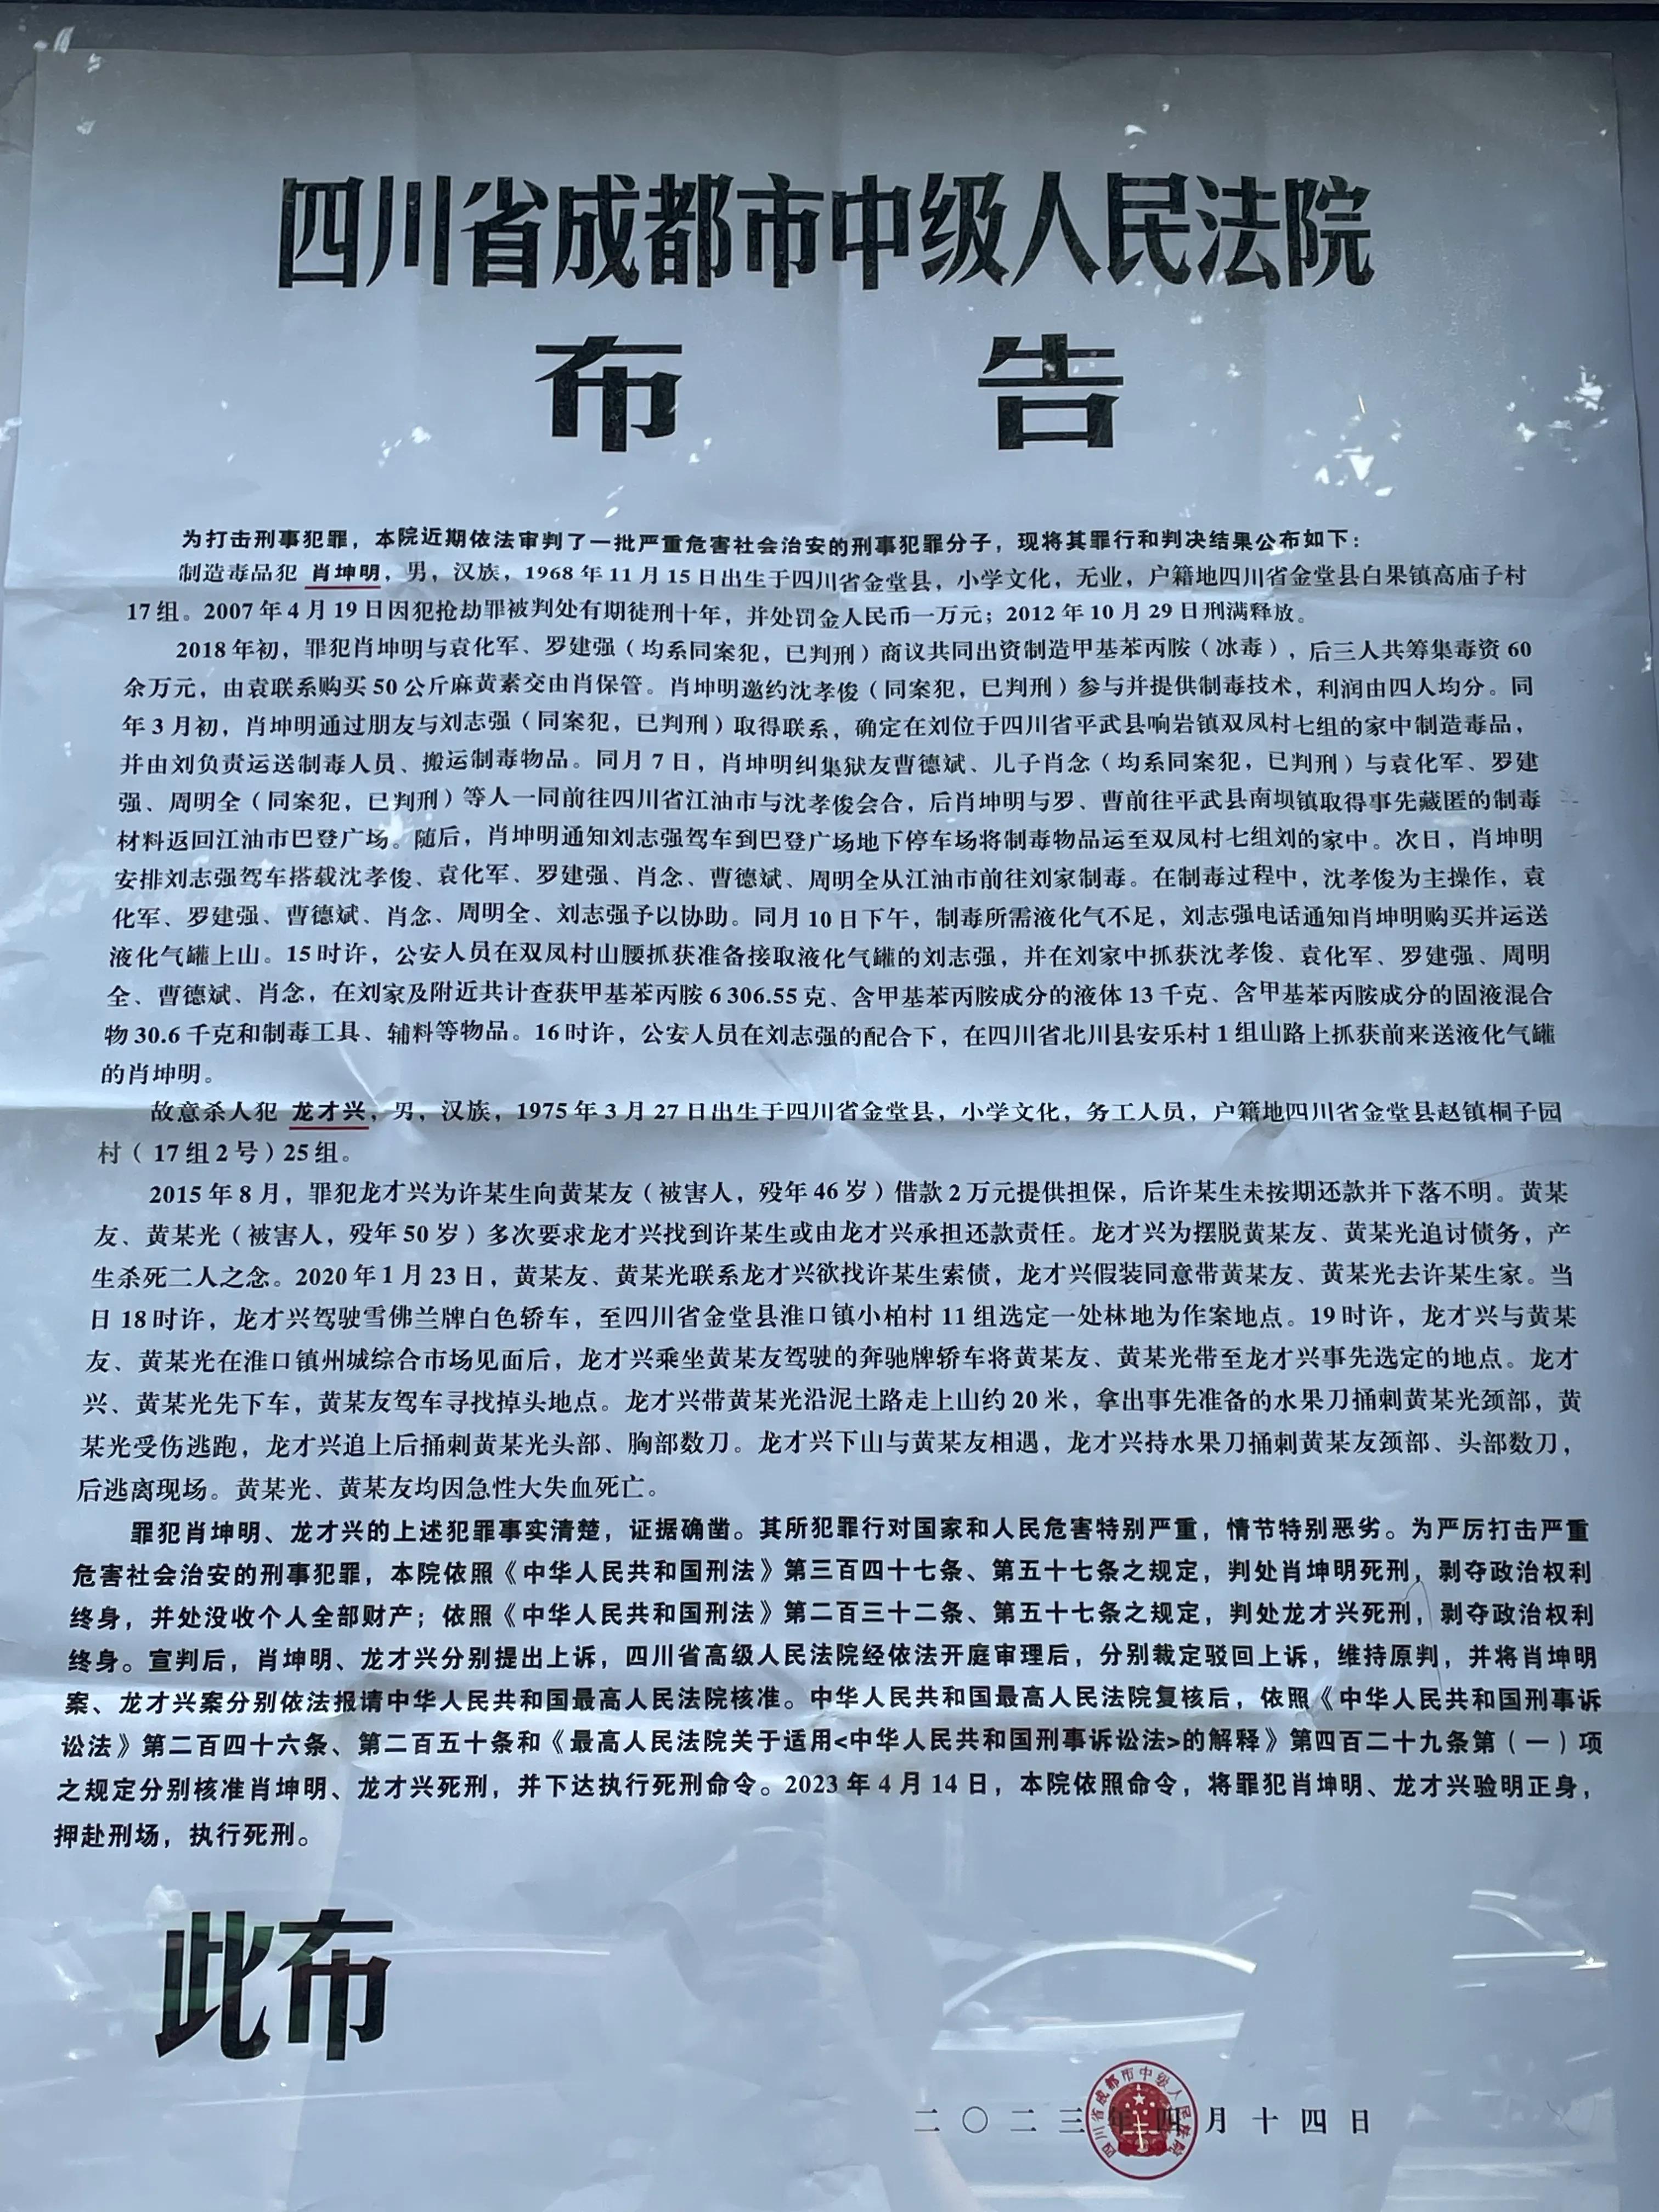 四川省成都市中级人民法院
布告
为打击刑事犯罪，本院近期依法审判了一批严重危害社会治安的刑事犯罪分子，现将其罪行和判决结果公布如下：
制造毒品犯 肖坤明，男，汉族，1968年11月15日出生于四川省金堂县，小学文化，无业，户籍地四川省金堂县白果镇高庙子村
17组。2007年4月19日因犯抢劫罪被判处有期徒刑十年，并处罚金人民币一万元；2012年10月29日刑满释放。
2018年初，罪犯肖坤明与袁化军、罗建强（均系同案犯，已判刑）商议共同出资制造甲基苯丙胺（冰毒），后三人共筹集毒资60
余万元，由袁联系购买50公斤麻黄素交由肖保管。肖坤明邀约沈孝俊（同案犯，已判刑）参与并提供制毒技术，利润由四人均分。同
年3月初，肖坤明通过朋友与刘志强（同案犯，已判刑）取得联系，确定在刘位于四川省平武县响岩镇双凤村七组的家中制造毒品，
并由刘负责运送制毒人员、搬运制毒物品。同月7日，肖坤明纠集狱友曹德斌、儿子肖念（均系同案犯，已判刑）与袁化军、罗建
强、周明全（同案犯，已判刑）等人一同前往四川省江油市与沈孝俊会合，后肖坤明与罗、曹前往平武县南坝镇取得事先藏匿的制毒
材料返回江油市巴登广场。随后，肖坤明通知刘志强驾车到巴登广场地下停车场将制毒物品运至双凤村七组刘的家中。次日，肖坤明
安排刘志强驾车搭载沈孝俊、袁化军、罗建强、肖念、曹德斌、周明全从江油市前往刘家制毒。在制毒过程中，沈孝俊为主操作，袁
化军、罗建强、曹德斌、肖念、周明全、刘志强予以协助。同月10日下午，制毒所需液化气不足，刘志强电话通知肖坤明购买并运送
液化气罐上山。15时许，公安人员在双凤村山腰抓获准备接取液化气罐的刘志强，并在刘家中抓获沈孝俊、袁化军、罗建强、周明
全、曹德斌、肖念，在刘家及附近共计查获甲基苯丙胺6 306.55克、含甲基苯丙胺成分的液体13千克、含甲基苯丙胺成分的固液混合
物30.6千克和制毒工具、辅料等物品。16时许，公安人员在刘志强的配合下，在四川省北川县安乐村1组山路上抓获前来送液化气罐
的肖坤明。
故意杀人犯 龙才兴，男，汉族，1975年3月27日出生于四川省金堂县，小学文化，务工人员，户籍地四川省金堂县赵镇桐子园
村（17组2号）25组。
2015年8月，罪犯龙才兴为许某生向黄某友（被害人，殁年46岁）借款2万元提供担保，后许某生未按期还款并下落不明。黄某
友、黄某光（被害人，殁年50岁）多次要求龙才兴找到许某生或由龙才兴承担还款责任。龙才兴为摆脱黄某友、黄某光追讨债务，产
生杀死二人之念。2020年1月23日，黄某友、黄某光联系龙才兴欲找许某生索债，龙才兴假装同意带黄某友、黄某光去许某生家。当
日18时许，龙才兴驾驶雪佛兰牌白色轿车，至四川省金堂县淮口镇小柏村11组选定一处林地为作案地点。19时许，龙才兴与黄某
友、黄某光在淮口镇州城综合市场见面后，龙才兴乘坐黄某友驾驶的奔驰牌轿车将黄某友、黄某光带至龙才兴事先选定的地点。龙才
兴、黄某光先下车，黄某友驾车寻找掉头地点。龙才兴带黄某光沿泥土路走上山约20米，拿出事先准备的水果刀捅刺黄某光颈部，黄
某光受伤逃跑，龙才兴追上后捅刺黄某光头部、胸部数刀。龙才兴下山与黄某友相遇，龙才兴持水果刀捅刺黄某友颈部、头部数刀，
后逃离现场。黄某光、黄某友均因急性大失血死亡。
罪犯肖坤明、龙才兴的上述犯罪事实清楚，证据确凿。其所犯罪行对国家和人民危害特别严重，情节特别恶劣。为严厉打击严重
危害社会治安的刑事犯罪，本院依照《中华人民共和国刑法》第三百四十七条、第五十七条之规定，判处肖坤明死刑，剥夺政治权利
终身，并处没收个人全部财产；依照《中华人民共和国刑法》第二百三十二条、第五十七条之规定，判处龙才兴死刑，剥夺政治权利
终身。宣判后，肖坤明、龙才兴分别提出上诉，四川省高级人民法院经依法开庭审理后，分别裁定驳回上诉，维持原判，并将肖坤明
案、龙才兴案分别依法报请中华人民共和国最高人民法院核准。中华人民共和国最高人民法院复核后，依照《中华人民共和国刑事诉
讼法》第二百四十六条、第二百五十条和《最高人民法院关于适用<中华人民共和国刑事诉讼法>的解释》第四百二十九条第（一）项
之规定分别核准肖坤明、龙才兴死刑，并下达执行死刑命令。2023年4月14日，本院依照命令，将罪犯肖坤明、龙才兴验明正身，
押赴刑场，执行死刑。
此布
二〇二三年四月十四日
四川省成都市中级人民法院